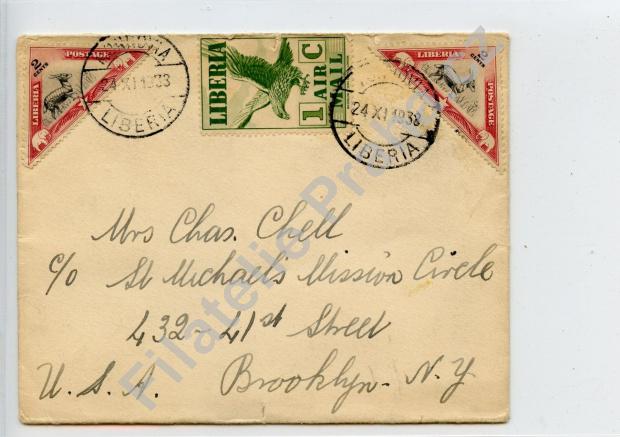 2 CENTS
POSTAGE
LIBERIA
MONROVIA
24 XI 1938
LIBERIA
LIBERIA
1 AIR C
MAIL
24 XI 1938
LIBERIA
LIBERIA
2 CENTS
POSTAGE
Mrs Chas. Chell
c/o St Michael's Mission Circle
432-41st Street
U.S.A. Brooklyn-N.Y
Filatelie Praha.cz